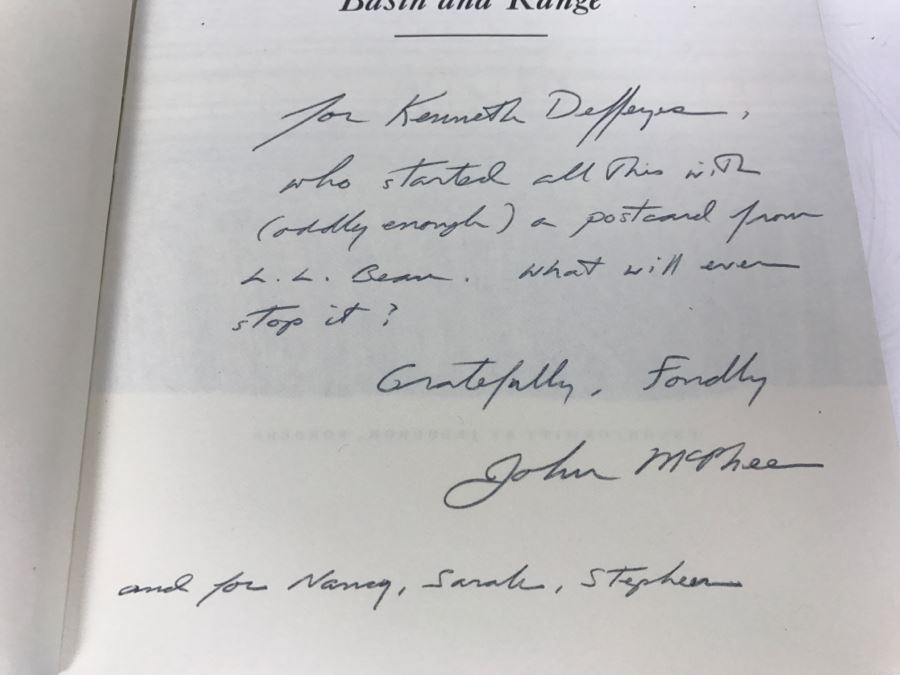 Basin and Range
for Kenneth Deffeyes,
who started all this with
(oddly enough) a postcard from
L.L. Bean. What will ever
stop it?
Gratefully, Fondly
John McPhee
and for Nancy, Sarah, Stephen